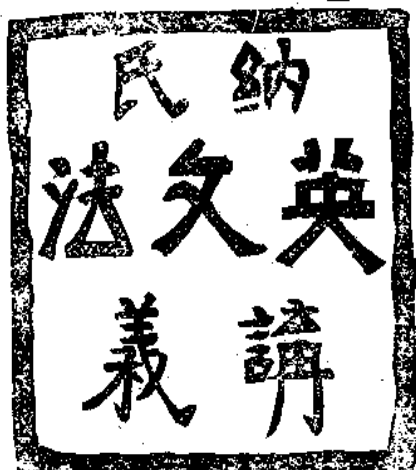 納氏
英文法
講義